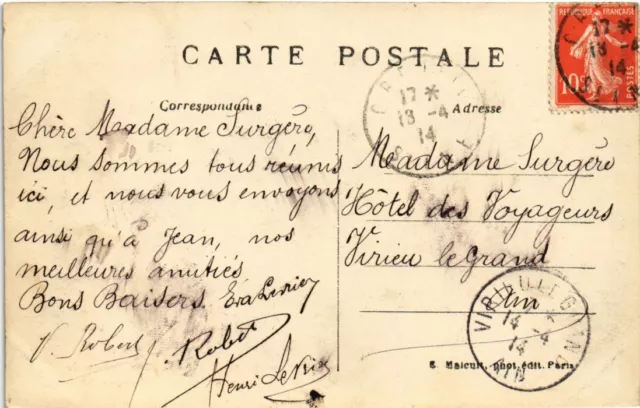 CARTE POSTALE
Correspondance
Adresse
Chère Madame Surgéro,
Nous sommes tous réunis
ici, et nous vous envoyons
ainsi qu'à Jean, nos
meilleures amitiés
Bons Baisers. Eva
V. Robert
Robert
Henri
Madame Surgéro
Hôtel des Voyageurs
Virieu le Grand
Ain
REPUBLIQUE FRANÇAISE
10
POSTES
17 *
13 -4
14
17 *
13 -4
14
14 -4
14
AIN
phot. édit. Paris